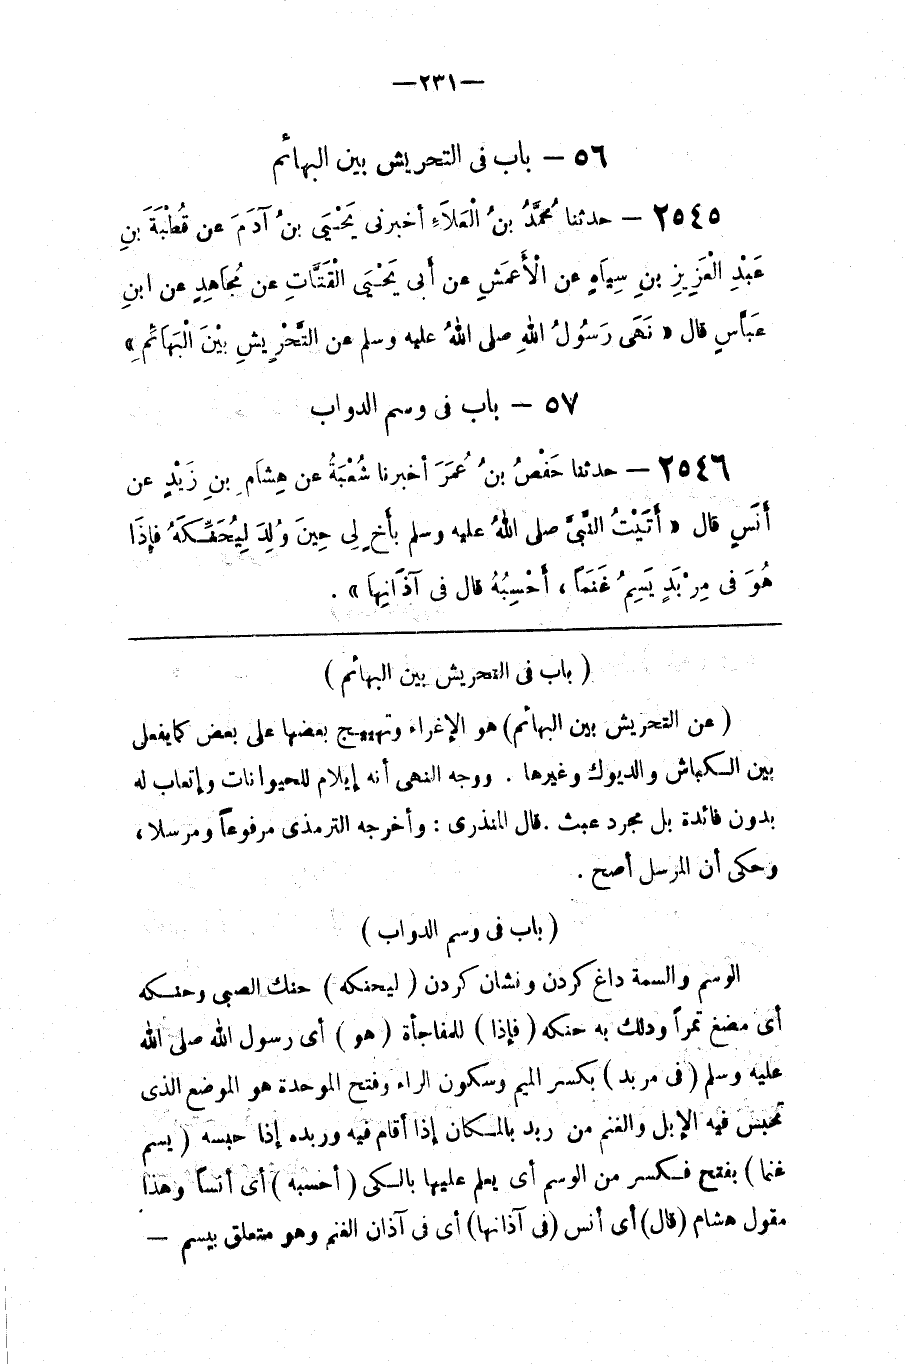 —٢٣١—
٥٦ — باب فى التحريش بين البهائم
٢٥٤٥ — حدثنا مُحمَّدُ بنُ الْعَلَاءِ أخبرنى يَحْـيَى بنُ آدَمَ عن قُطْبَةَ بنِ
عَبْدِ الْعَزِيزِ بنِ سِيَاهٍ عن الْأَعمَشِ عن أبى يَحْـيَى الْقَتَّاتِ عن مُجَاهِدٍ عن ابنِ
عَبَّاسٍ قال « نَهَى رَسُولُ اللهِ صلى اللهُ عليه وسلم عن التَّحْرِيشِ بيْنَ الْبَهَائمِ »
٥٧ — باب فى وسم الدواب
٢٥٤٦ — حدثنا حَفْصُ بنُ عُمَرَ أخبرنا شُعْبَةُ عن هِشَامِ بنِ زَيْدٍ عن
أَنَسٍ قال « أَتَيْتُ النَّبىَّ صلى اللهُ عليه وسلم بأَخٍ لِى حِينَ وُلِدَ لِيُحَنِّـكَهُ فإذَا
هُوَ فى مِرْبَدٍ يَسِمُ غَنَمًا ، أَحْسِبُهُ قال فى آذَانِهَا » .
( باب فى التحريش بين البهائم )
( عن التحريش بين البهائم ) هو الإغراء وتهييـج بعضها على بعض كما يفعل
بين الـكباش والديوك وغيرها . ووجه النهى أنه إيلام للحيوانات وإتعاب له
بدون فائدة بل مجرد عبث . قال المنذرى : وأخرجه الترمذى مرفوعاً ومرسلا ،
وحكى أن المرسل أصح .
( باب فى وسم الدواب )
الوسم والسمة داغ كردن ونشان كردن ( ليحنكه ) حنك الصبى وحنـكه
أى مضغ تمراً ودلك به حنكه ( فإذا ) للمفاجأة ( هو ) أى رسول الله صلى الله
عليه وسلم ( فى مربد ) بكسر الميم وسكون الراء وفتح الموحدة هو الموضع الذى
تحبس فيه الإبل والغنم من ربد بالمـكان إذا أقام فيه وربده إذا حبسه ( يسم
غنما ) بفتح فـكسر من الوسم أى يعلم عليها بالـكى ( أحسبه ) أى أنساً وهذا
مقول هشام ( قال ) أى أنس ( فى آذانها ) أى فى آذان الغنم وهو متعلق بيسم —